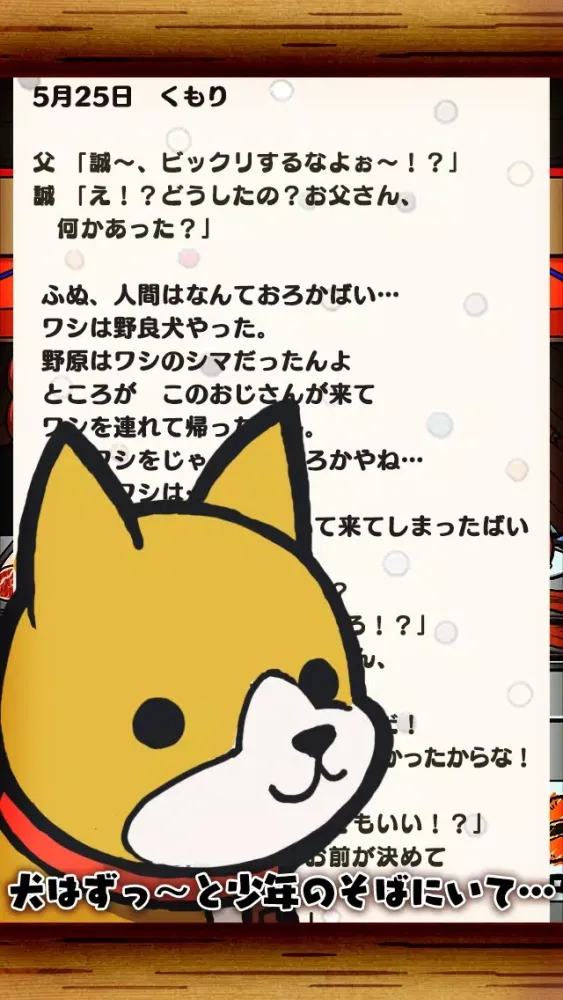 5月25日　くもり
父「誠～、ビックリするなよぉ～！？」
誠「え！？どうしたの？お父さん、
何かあった？」
ふぬ、人間はなんておろかばい…
ワシは野良犬やった。
野原はワシのシマだったんよ
ところが　このおじさんが来て
ワシを連れて帰っ
ワシをじゃ ろかやね…
ワシは
て来てしまったばい
？
ろ！？」
ん、
だ！
かったからな！
もいい！？」
お前が決めて
犬はずっ～と少年のそばにいて…